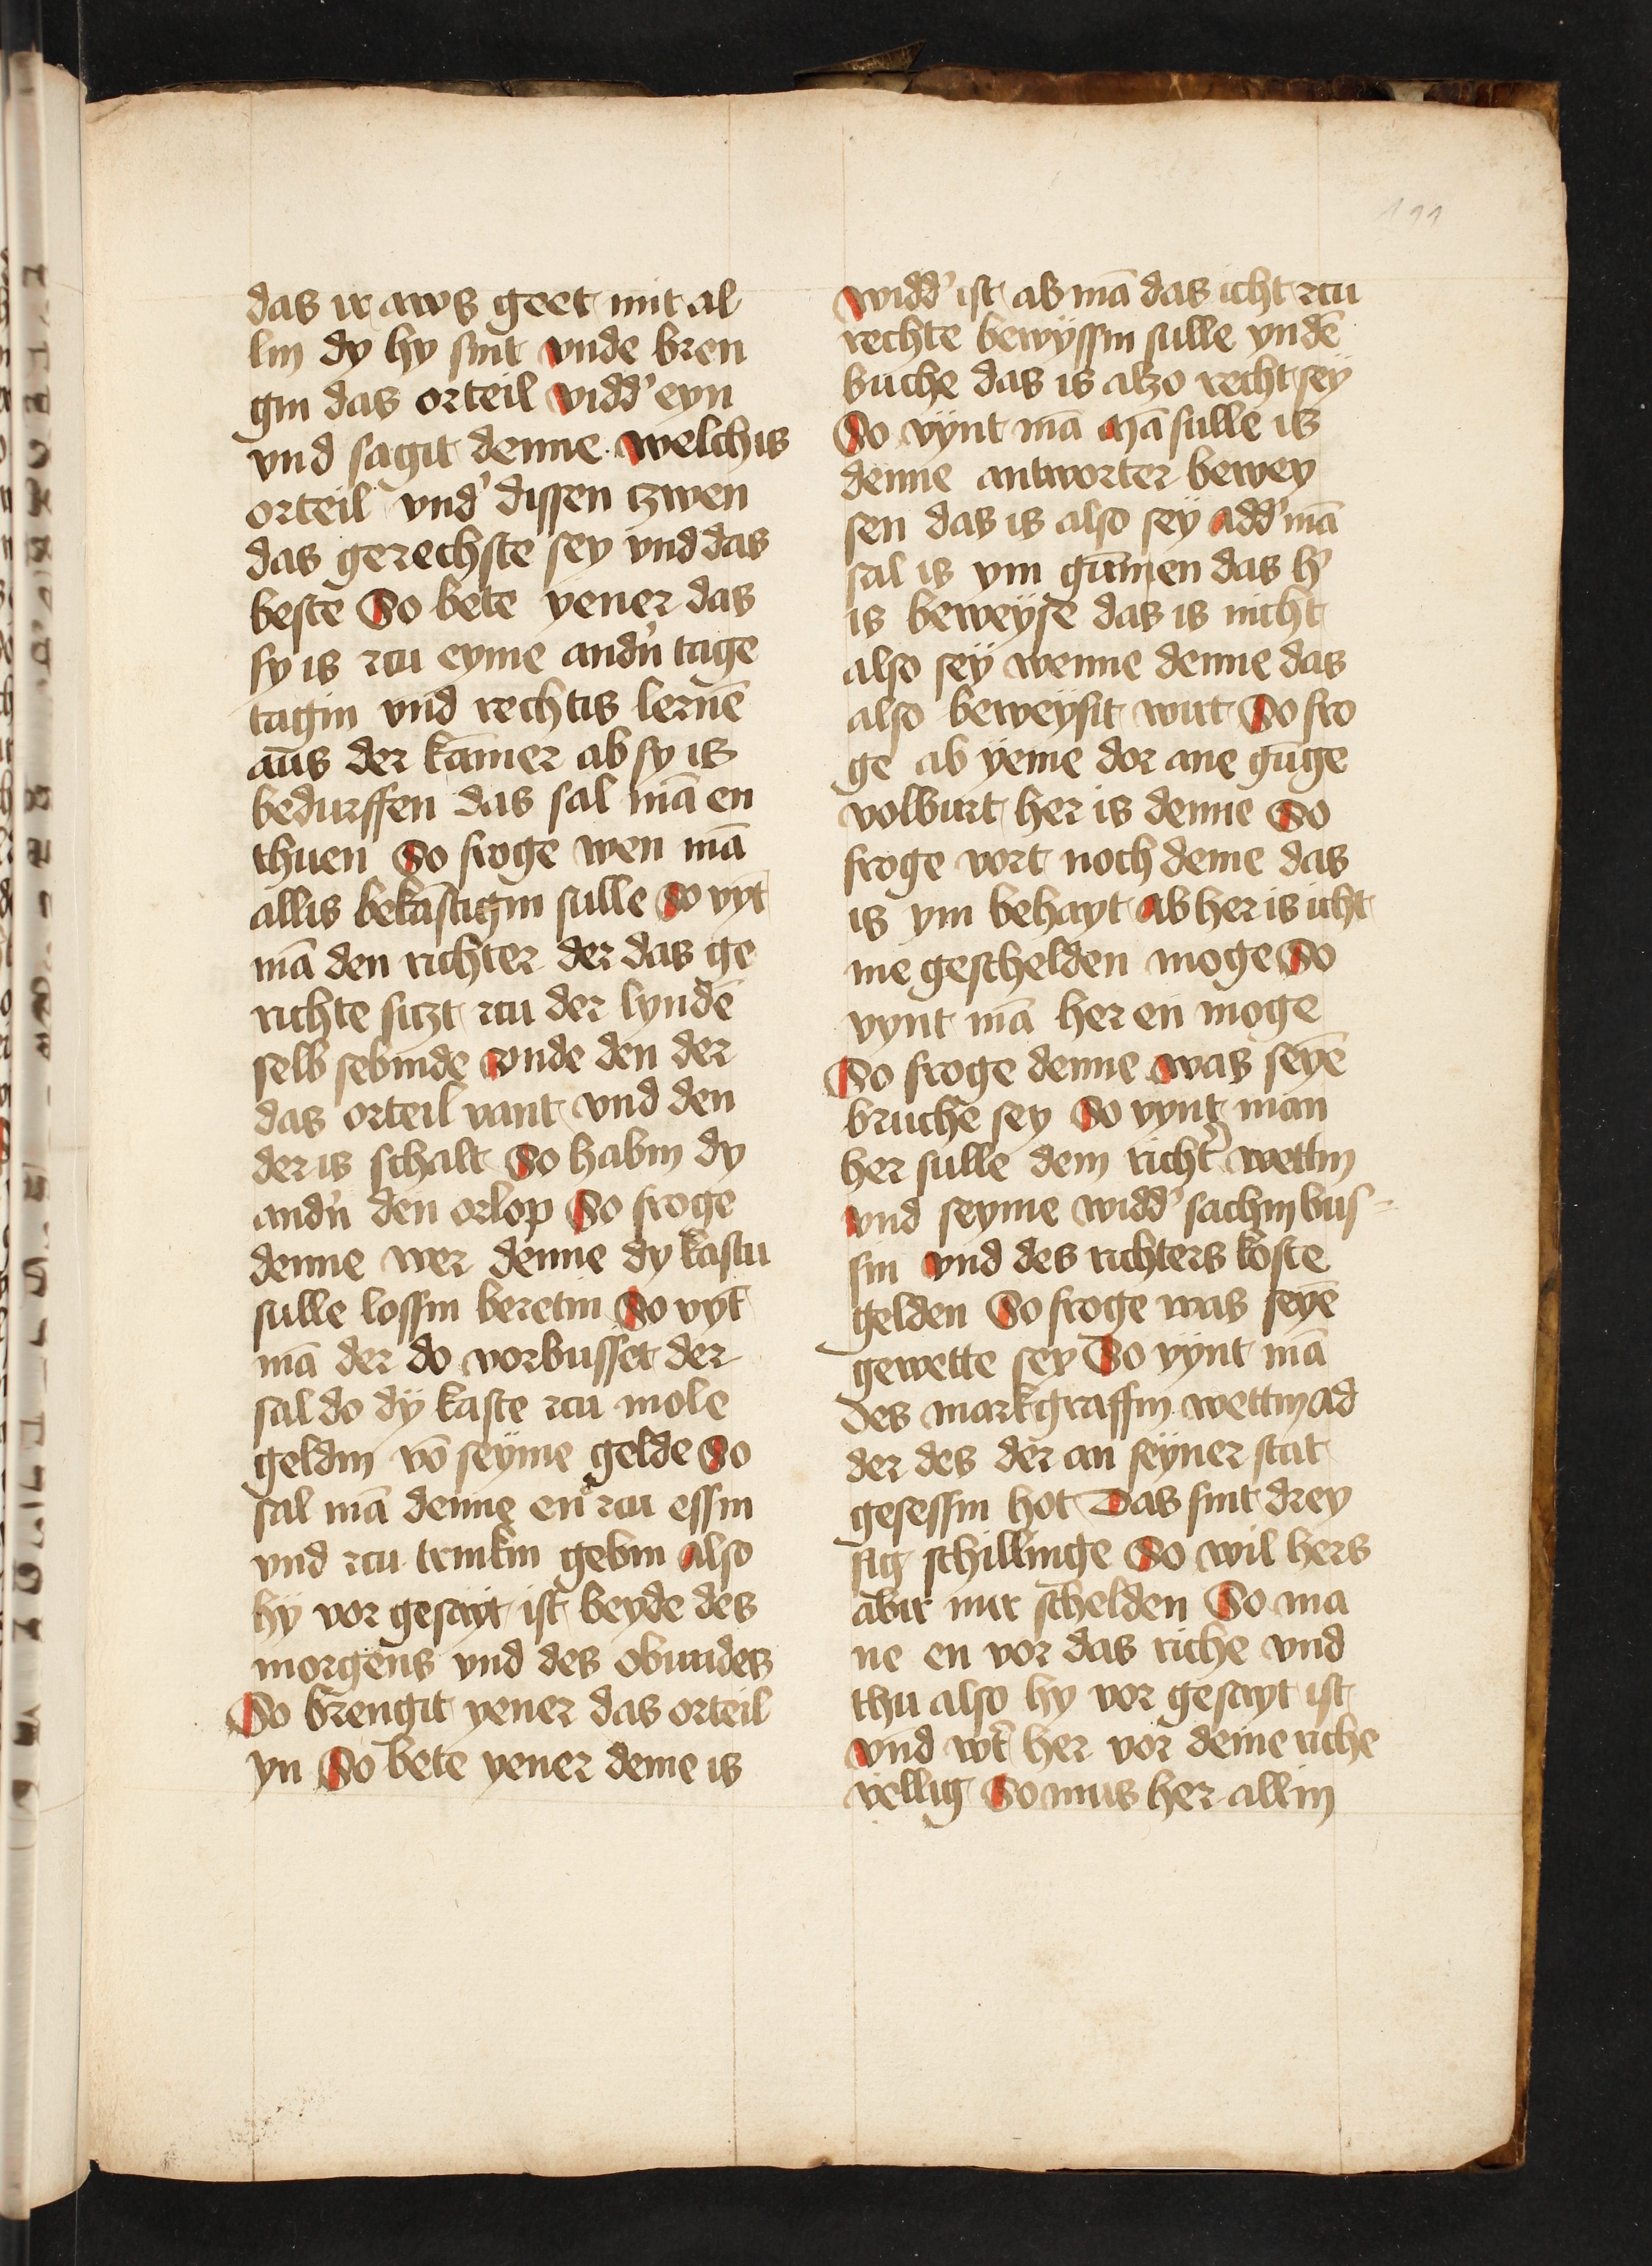 111
das ir aws geet mit al
lin dy hy sint vnde bren
gin das orteil widd' eyn
vnd sagit denne welchis
orteil vnd' dissen tzwen
das gerechste sey vnd das
beste So bete yener das
sy is tzu eyme andn̄ tage
tagin vnd rechtis lernē
aus der kam̄er ab sy is
bedurffen das sal mā en
thuen So froge wen mā
allis bekastigin sulle So vȳt
mā den richter der das ge
richte siczt tzu der lyndē
selb sebinde vnde den der
das orteil vant vnd den
der is schalt So habin dy
andn̄ den orlop So froge
denne wer denne dy kastu
sulle lossin beretin So vȳt
mā der do vorbusset der
sal do dÿ kaste tzu mole
geldin vō seyme gelde So
sal mā denne en tzu essin
vnd tzu trinkin gebin also
hÿ vor gesayt ist beyde des
morgens vnd des obundes
So brengit yener das orteil
yn So bete yener deme is
widd' ist ab mā das icht tzu
rechte bewÿssin sulle yn dē
buche das is alzo recht seÿ
So vÿnt mā Mā sulle is
denne antworter bewey
sen das is also seÿ add' mā
sal is ym gūnen das h'
is beweÿse das is nicht
also seÿ wenne denne das
also beweÿsit wirt So fro
ge ab ÿeme dor ane guge
volburt her is denne So
froge vort noch deme das
is ym behayt Ab her is icht
me geschelden moge So
vynt mā her en moge
So froge denne was seyē
bruche sey So vynt man
her sulle dem richt' wettin
vnd seyme widd' sachin bus=
sin vnd des richters koste
gelden So froge was seyē
gewette sey So vÿnt mā
des markgraffin wettin ad
der des der an seÿner stat
gesessin hot Das sint drey
sig schillinge So wil hers
abir mir schelden So ma
ne en vor das riche vnd
thu also hy vor gesayt ist
vnd wt' her vor deme riche
vellig So mus her allin